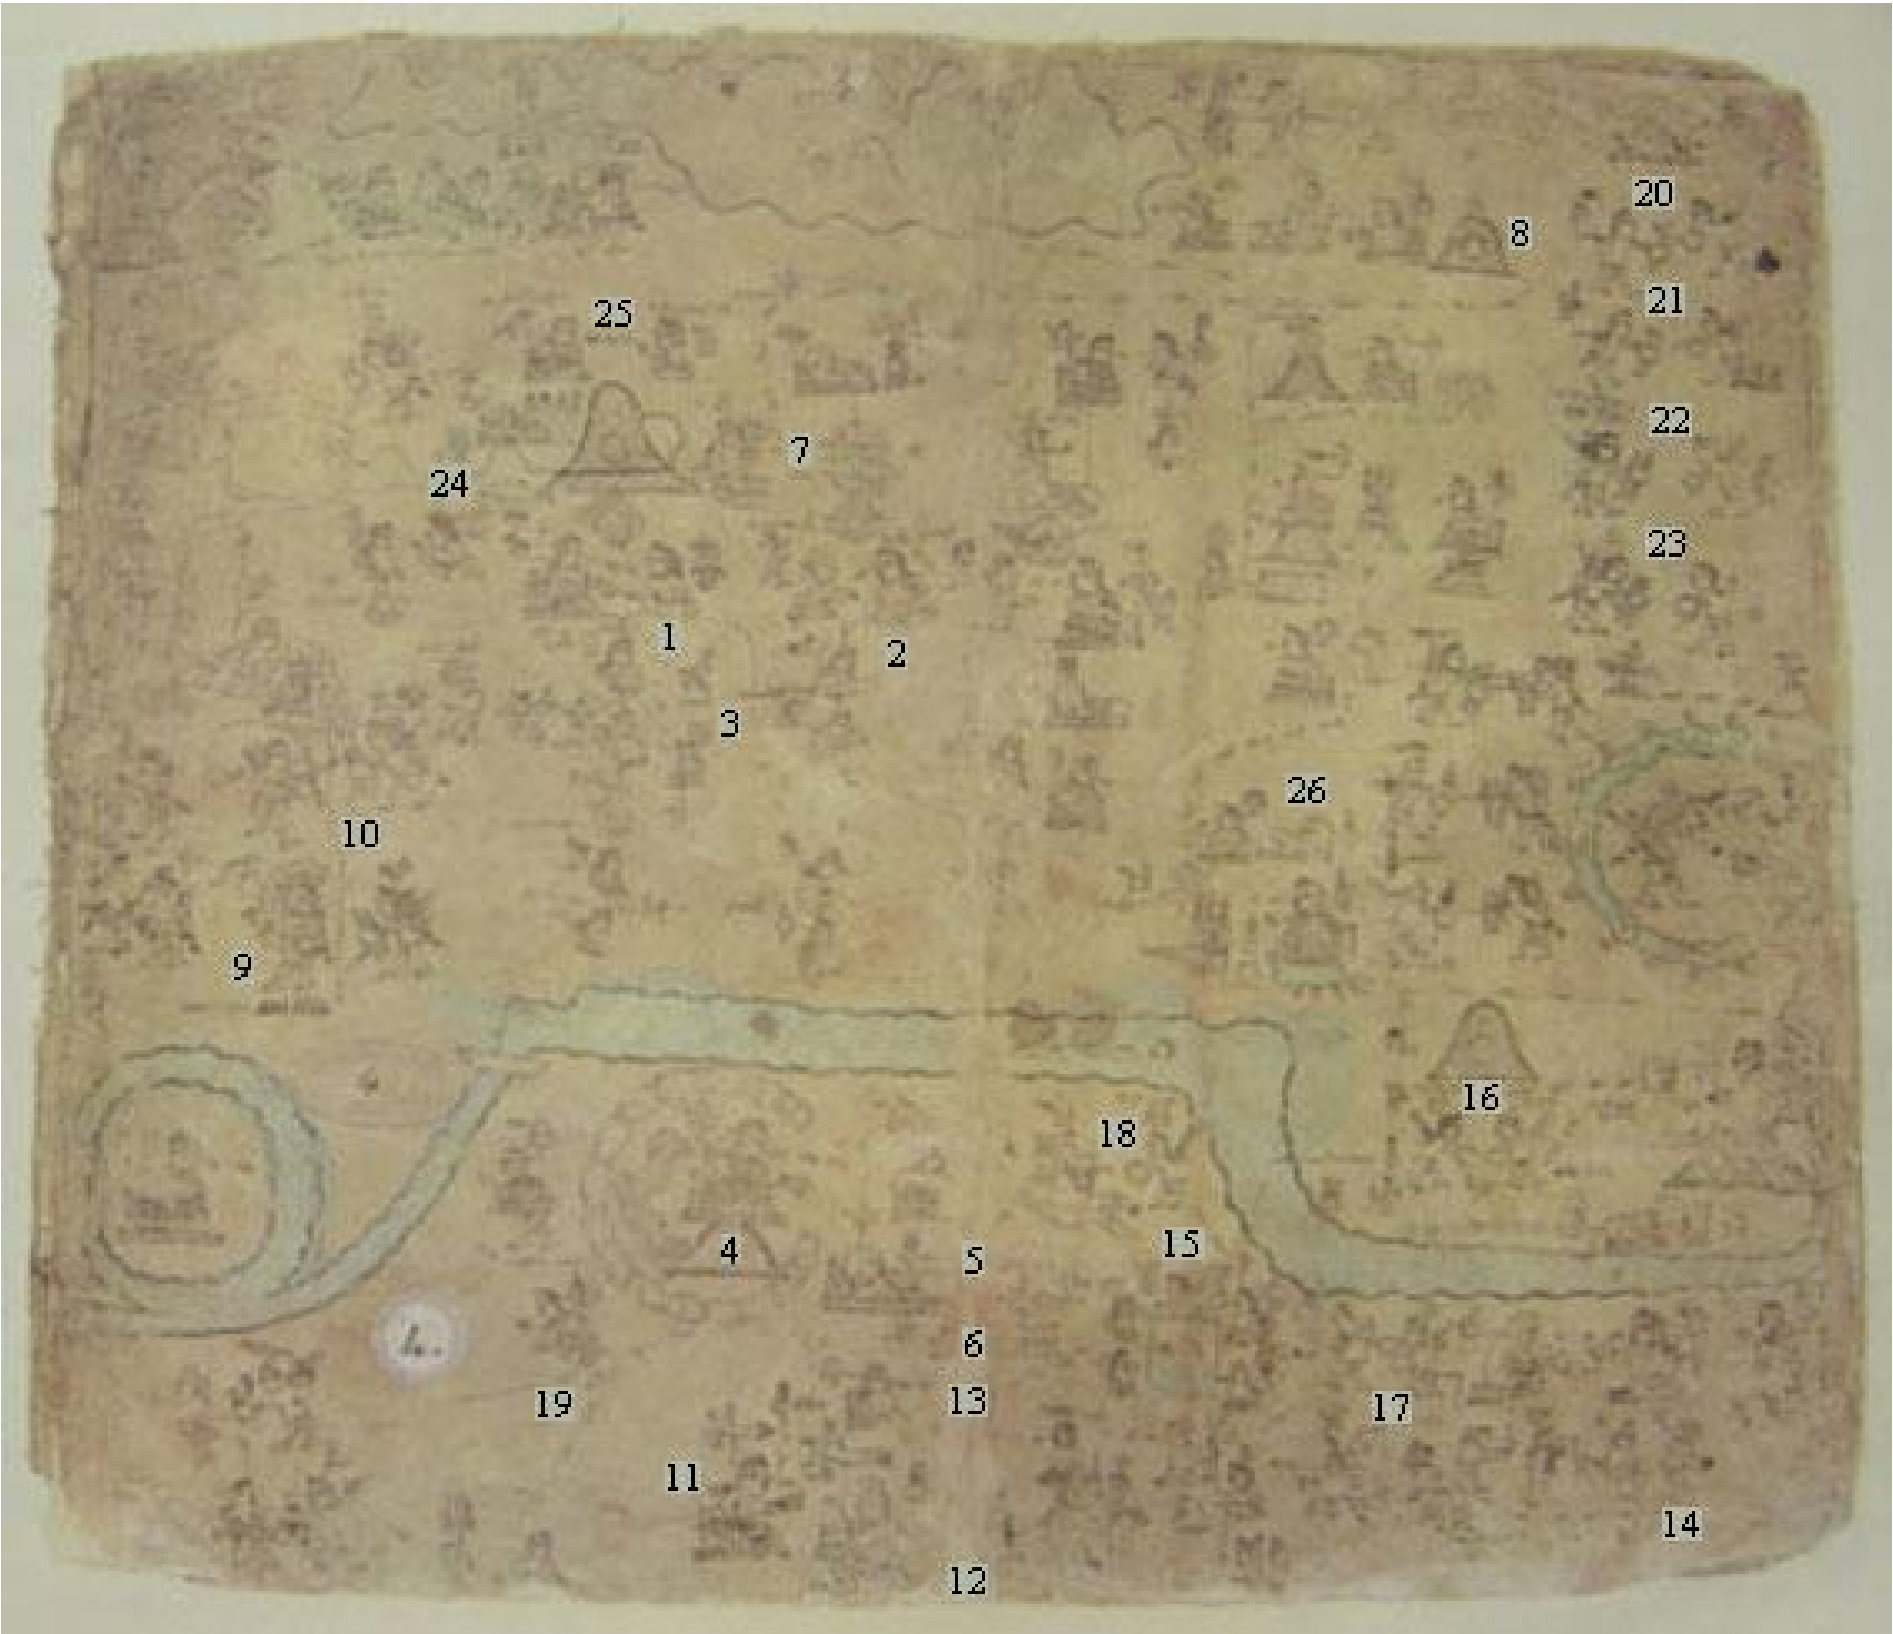 20
8
21
25
22
7
24
23
1
2
3
26
10
9
16
18
15
4
5
6
13
19
17
11
14
12